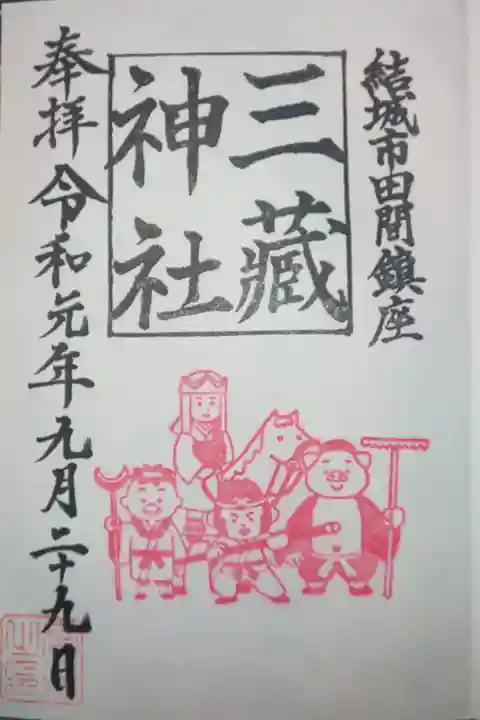 結城市田間鎮座
三藏
神社
奉拝令和元年九月二十九日